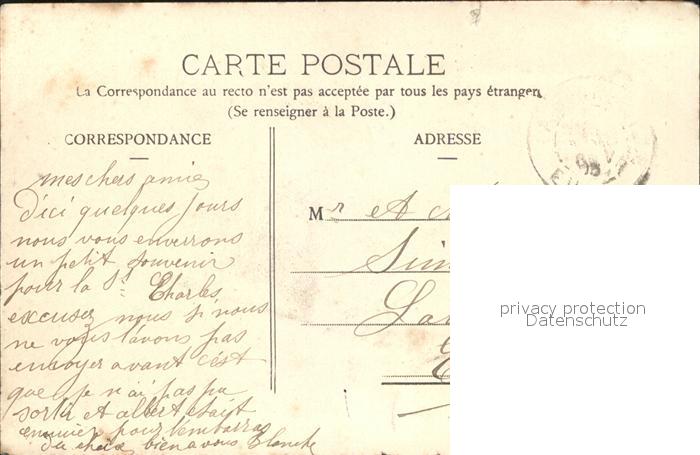 CARTE POSTALE
La Correspondance au recto n'est pas acceptée par tous les pays étrangers
(Se renseigner à la Poste.)
CORRESPONDANCE
mes chers amis
D'ici quelques jours
nous vous enverrons
un petit souvenir
pour la St Charles
excusez nous si nous
ne vous l'avons pas
envoyer avant c'est
que je n'ai pas pu
sortir et albert était
ennuier pour l'embarras
du choix bien a vous Blanche
ADRESSE
Mr et
privacy protection
Datenschutz